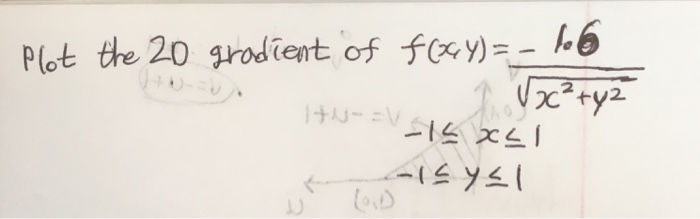 Plot the 20 gradient of f(x,y) = - 1.6 / √x²+y²
-1 ≤ x ≤ 1
-1 ≤ y ≤ 1